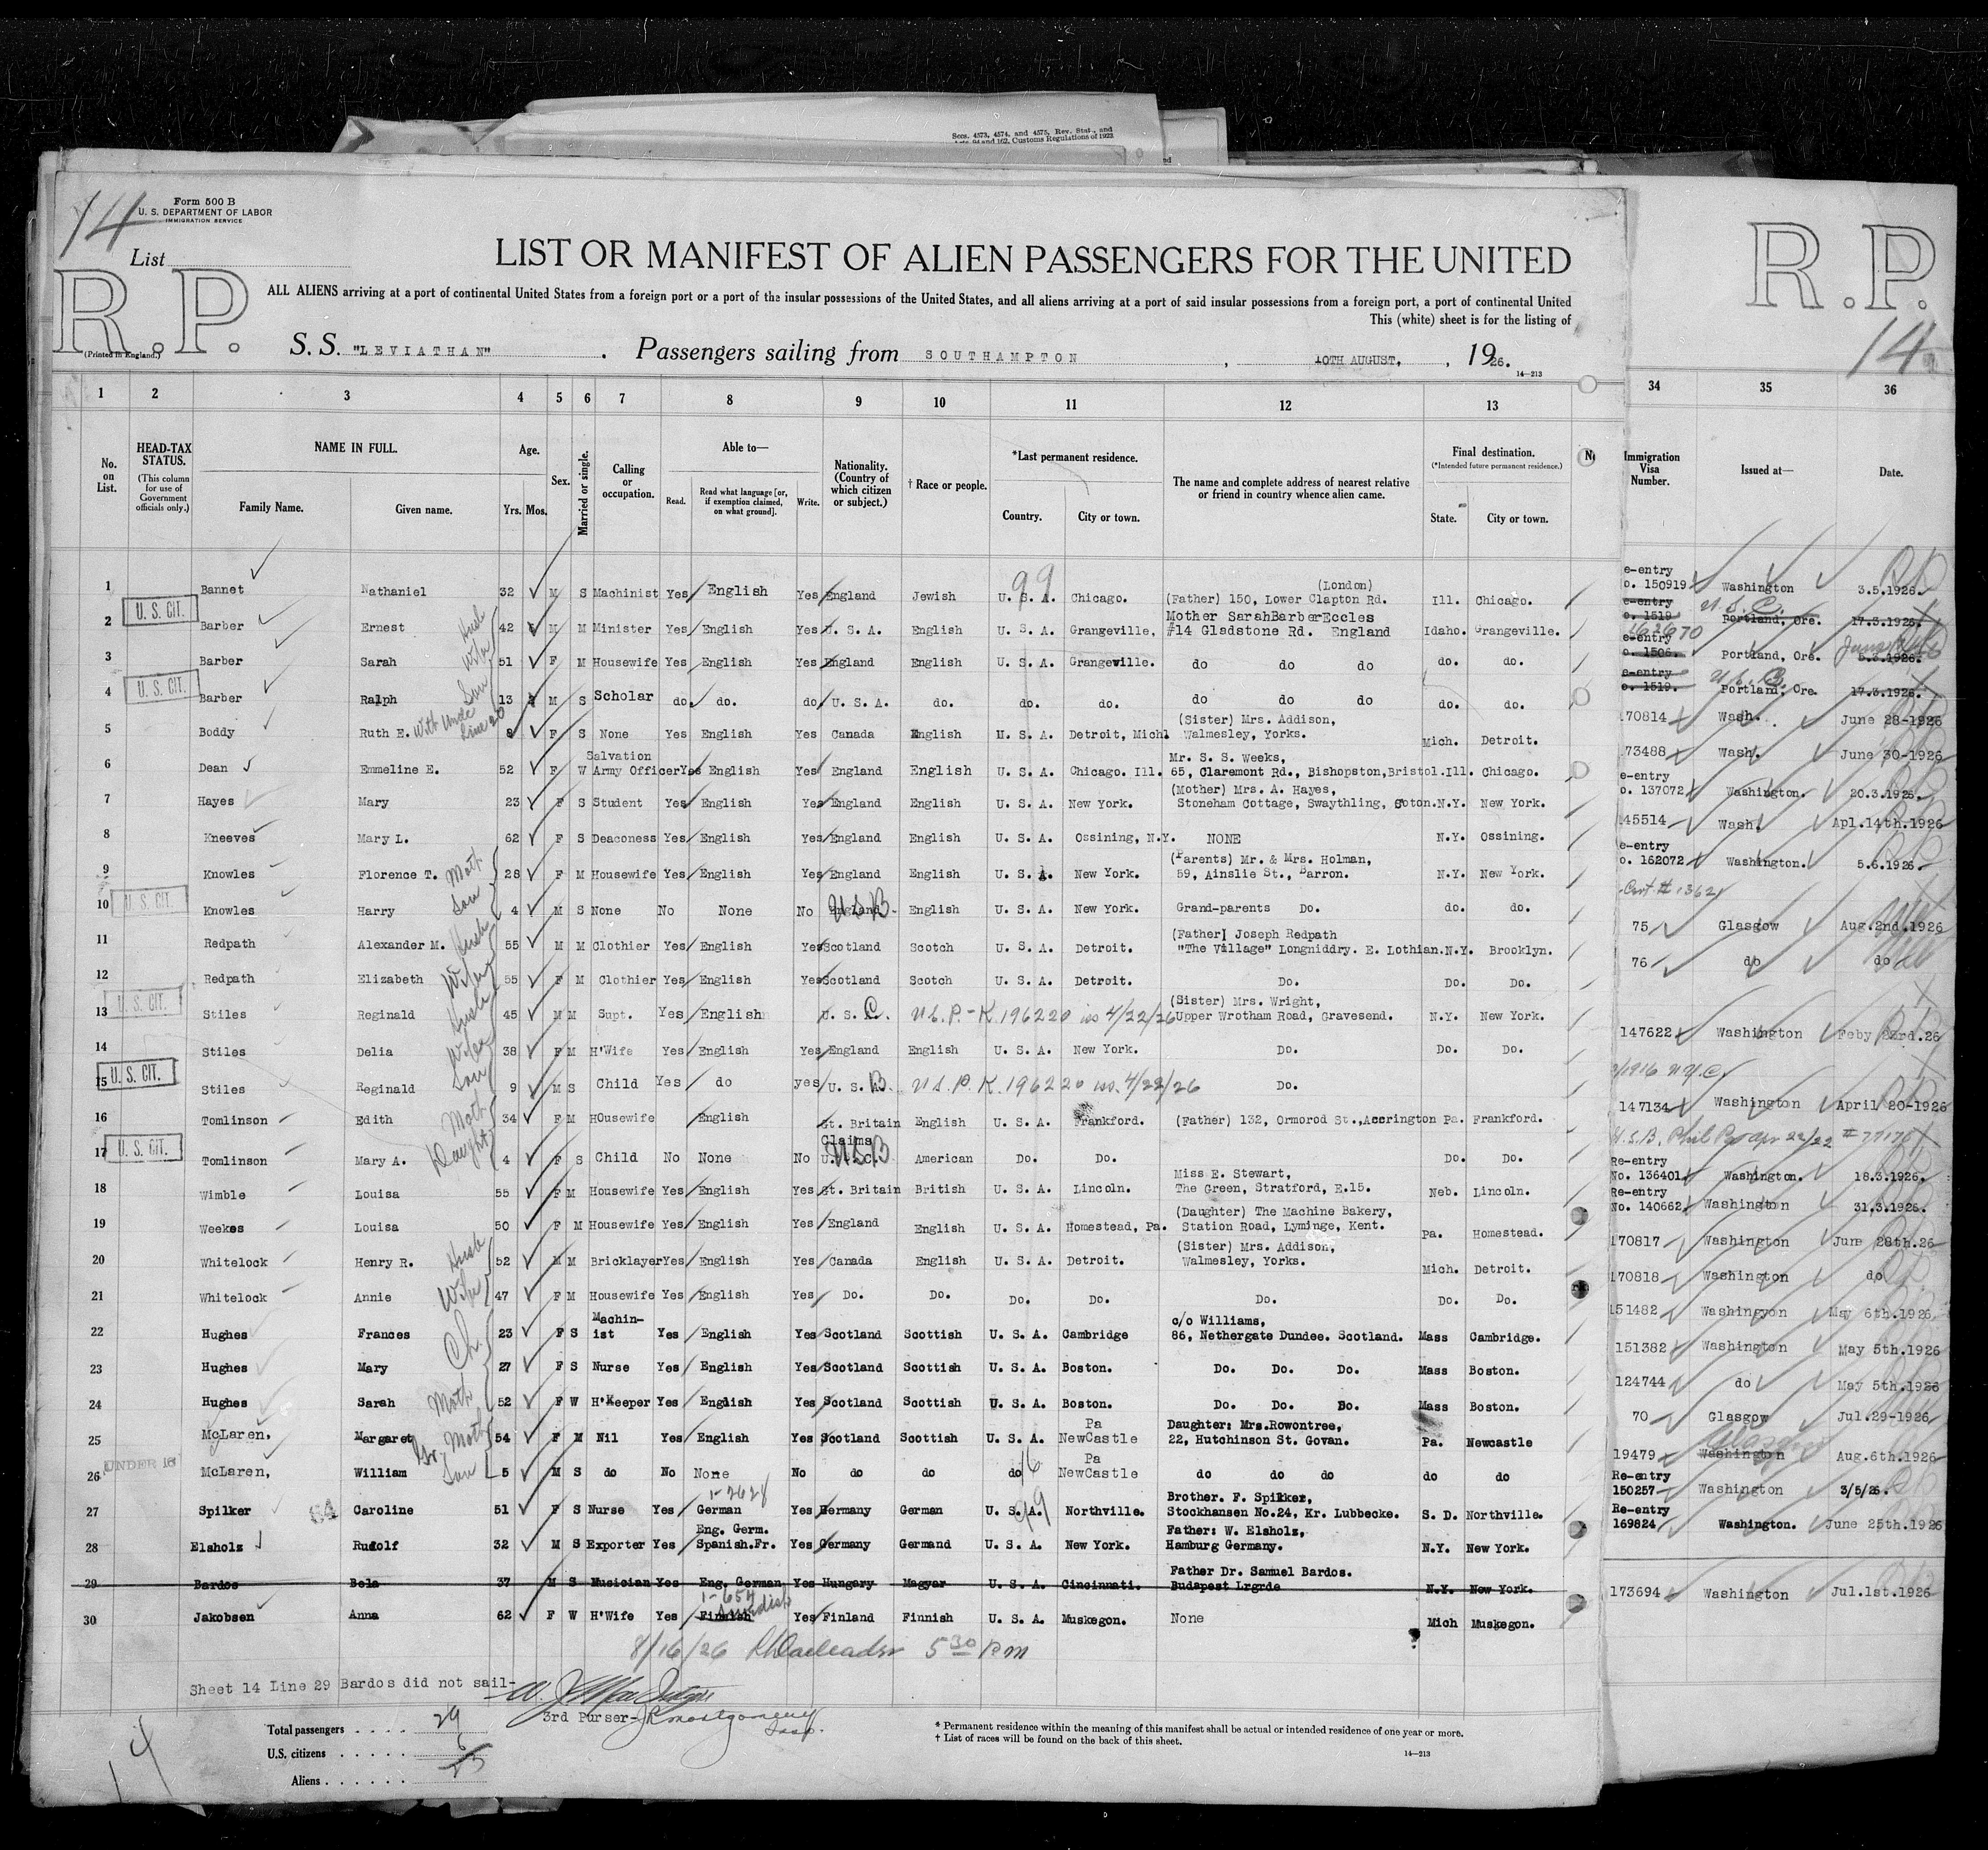 Secs. 4573, 4574, and 4575, Rev. Stat., and
Acts. 94 and 162, Customs Regulations of 1922
14
Form 500 B
U. S. DEPARTMENT OF LABOR
IMMIGRATION SERVICE
List
R.P.
(Printed in England.)
LIST OR MANIFEST OF ALIEN PASSENGERS FOR THE UNITED
ALL ALIENS arriving at a port of continental United States from a foreign port or a port of the insular possessions of the United States, and all aliens arriving at a port of said insular possessions from a foreign port, a port of continental United
This (white) sheet is for the listing of
S. S. "LEVIATHAN" . Passengers sailing from SOUTHAMPTON , 10TH AUGUST, , 1926.
14—213
R.P.
14
1 2 3 4 5 6 7 8 9 10 11 12 13 34 35 36
No. on List.
HEAD-TAX STATUS.
(This column for use of Government officials only.)
NAME IN FULL.
Family Name. Given name.
Age.
Yrs. Mos.
Sex.
Married or single.
Calling or occupation.
Able to—
Read. Read what language [or, if exemption claimed, on what ground]. Write.
Nationality. (Country of which citizen or subject.)
† Race or people.
*Last permanent residence.
Country. City or town.
The name and complete address of nearest relative or friend in country whence alien came.
Final destination.
(*Intended future permanent residence.)
State. City or town.
Immigration Visa Number. Issued at— Date.
99
1 Bannet Nathaniel 32 M S Machinist Yes English Yes England Jewish U. S. A. Chicago. (London) (Father) 150, Lower Clapton Rd. Ill. Chicago. e-entry o. 150919 Washington 3.5.1926.
U. S. CIT.
2 Barber Ernest Husb 42 M M Minister Yes English Yes U. S. A. English U. S. A. Grangeville, Mother SarahBarberEccles #14 Gladstone Rd. England Idaho. Grangeville. e-entry o. 1519 U.S.C. Portland, Ore. 17.3.1926.
3 Barber Sarah Wife 51 F M Housewife Yes English Yes England English U. S. A. Grangeville. do do do do. do. e-entry o. 1506. Portland, Ore. 5.3.1926.
U. S. CIT.
4 Barber Ralph Son 13 M S Scholar do. do. do U. S. A. do. do. do. do do do do. do. e-entry o. 1519. Portland, Ore. 17.3.1926.
5 Boddy Ruth E. With Uncle Line 20 8 F S None Yes English Yes Canada English U. S. A. Detroit, Mich. (Sister) Mrs. Addison, Walmesley, Yorks. Mich. Detroit. 170814 Wash. June 28-1926
6 Dean Emmeline E. 52 F W Salvation Army Officer Yes English Yes England English U. S. A. Chicago. Ill. Mr. S. S. Weeks, 65, Claremont Rd., Bishopston,Bristol. Ill. Chicago. 73488 Wash. June 30-1926
7 Hayes Mary 23 F S Student Yes English Yes England English U. S. A. New York. (Mother) Mrs. A. Hayes, Stoneham Cottage, Swaythling, Soton. N.Y. New York. e-entry o. 137072 Washington. 20.3.1926.
8 Kneeves Mary L. 62 F S Deaconess Yes English Yes England English U. S. A. Ossining, N.Y. NONE N.Y. Ossining. 45514 Wash. Apl.14th.1926
9 Knowles Florence T. Moth 28 F M Housewife Yes English Yes England English U. S. A. New York. (Parents) Mr. & Mrs. Holman, 59, Ainslie St., Barron. N.Y. New York. e-entry o. 162072 Washington. 5.6.1926.
U. S. CIT.
10 Knowles Harry Son 4 M S None No None No England. U S B English U. S. A. New York. Grand-parents Do. do. do. Cert. # 1362
11 Redpath Alexander M. Husb 55 M M Clothier Yes English Yes Scotland Scotch U. S. A. Detroit. (Father) Joseph Redpath "The Village" Longniddry. E. Lothian. N.Y. Brooklyn. 75 Glasgow Aug.2nd.1926
12 Redpath Elizabeth Wife 55 F M Clothier Yes English Yes Scotland Scotch U. S. A. Detroit. Do. Do. Do. 76 do do
U. S. CIT.
13 Stiles Reginald Husb 45 M M Supt. Yes English U. S. C. U.S.P.-K. 196220 iss 4/22/26 (Sister) Mrs. Wright, Upper Wrotham Road, Gravesend. N.Y. New York.
14 Stiles Delia Wife 38 F M H'Wife Yes English Yes England English U. S. A. New York. Do. Do. Do. 147622 Washington Feby 23rd.26
U. S. CIT.
15 Stiles Reginald Son 9 M S Child Yes do yes U. S. B. U.S.P. K. 196220 iss. 4/22/26 Do. 1916 N.Y.C.
16 Tomlinson Edith Moth 34 F M HOusewife English Gt. Britain English U. S. A. Frankford. (Father) 132, Ormorod St.,Accrington Pa. Frankford. 147134 Washington April 20-1926
U. S. CIT.
17 Tomlinson Mary A. Daught 4 F S Child No None No Claims U.S.C. U S B American Do. Do. Do. Do. U.S.B. Phil
18 Wimble Louisa 55 F M Housewife Yes English Yes Gt. Britain British U. S. A. Lincoln. Miss E. Stewart, The Green, Stratford, E.15. Neb. Lincoln. Re-entry No. 136401 Washington. 18.3.1926.
19 Weekes Louisa 50 F M Housewife Yes English Yes England English U. S. A. Homestead, Pa. (Daughter) The Machine Bakery, Station Road, Lyminge, Kent. Pa. Homestead. Re-entry No. 140662 Washington 31.3.1926.
20 Whitelock Henry R. Husb 52 M M Bricklayer Yes English Yes Canada English U. S. A. Detroit. (Sister) Mrs. Addison, Walmesley, Yorks. Mich. Detroit. 170817 Washington June 28th.26
21 Whitelock Annie Wife 47 F M Housewife Yes English Yes Do. Do. Do. Do. Do. Do. Do. 170818 Washington do
22 Hughes Frances Ch. 23 F S Machin- ist Yes English Yes Scotland Scottish U. S. A. Cambridge c/o Williams, 86, Nethergate Dundee. Scotland. Mass Cambridge. 151482 Washingyon May 6th.1926
23 Hughes Mary 27 F S Nurse Yes English Yes Scotland Scottish U. S. A. Boston. Do. Do. Do. Mass Boston. 151382 Washington May 5th.1926
24 Hughes Sarah Moth 52 F W H'Keeper Yes English Yes Scotland Scottish U. S. A. Boston. Do. Do. Do. Mass Boston. 124744 do May 5th.1926
25 McLaren, Margaret Gr. Moth 54 F M Nil Yes English Yes Scotland Scottish U. S. A. Pa NewCastle Daughter: Mrs.Rowontree, 22, Hutchinson St. Govan. Pa. Newcastle 70 Glasgow Jul.29-1926
UNDER 16
26 McLaren, William Son 5 M S do No None No do do do Pa NewCastle do do do do do 19479 Washington Aug.6th.1926
1-2628
27 Spilker Caroline 51 F S Nurse Yes German Yes Germany German U. S. A. 99 Northville. Brother. F. Spilker, Stockhansen No.24, Kr. Lubbecke. S. D. Northville. Re-entry 150257 Washington 3/5/26.
28 Elsholz Rudolf 32 M S Exporter Yes Eng. Germ. Spanish.Fr. Yes Germany Germand U. S. A. New York. Father: W. Elsholz, Hamburg Germany. N.Y. New York. Re-entry 169824 Washington. June 25th.1926
29 Bardos Bela 37 M S Musician Yes Eng. German Yes Hungary Magyar U. S. A. Cincinnati. Father Dr. Samuel Bardos. Budapest Lrgrde N.Y. New York.
1-654
30 Jakobsen Anna 62 F W H'Wife Yes Finnish Swedish Yes Finland Finnish U. S. A. Muskegon. None Mich Muskegon. 173694 Washington Jul.1st.1926
8/16/26 5 30 PM
Sheet 14 Line 29 Bardos did not sail-
3rd Purser- Montgomery
Insp.
Total passengers . . . . 29
U.S. citizens . . . . . 6
Aliens . . . . . .
* Permanent residence within the meaning of this manifest shall be actual or intended residence of one year or more.
† List of races will be found on the back of this sheet.
14—213
14